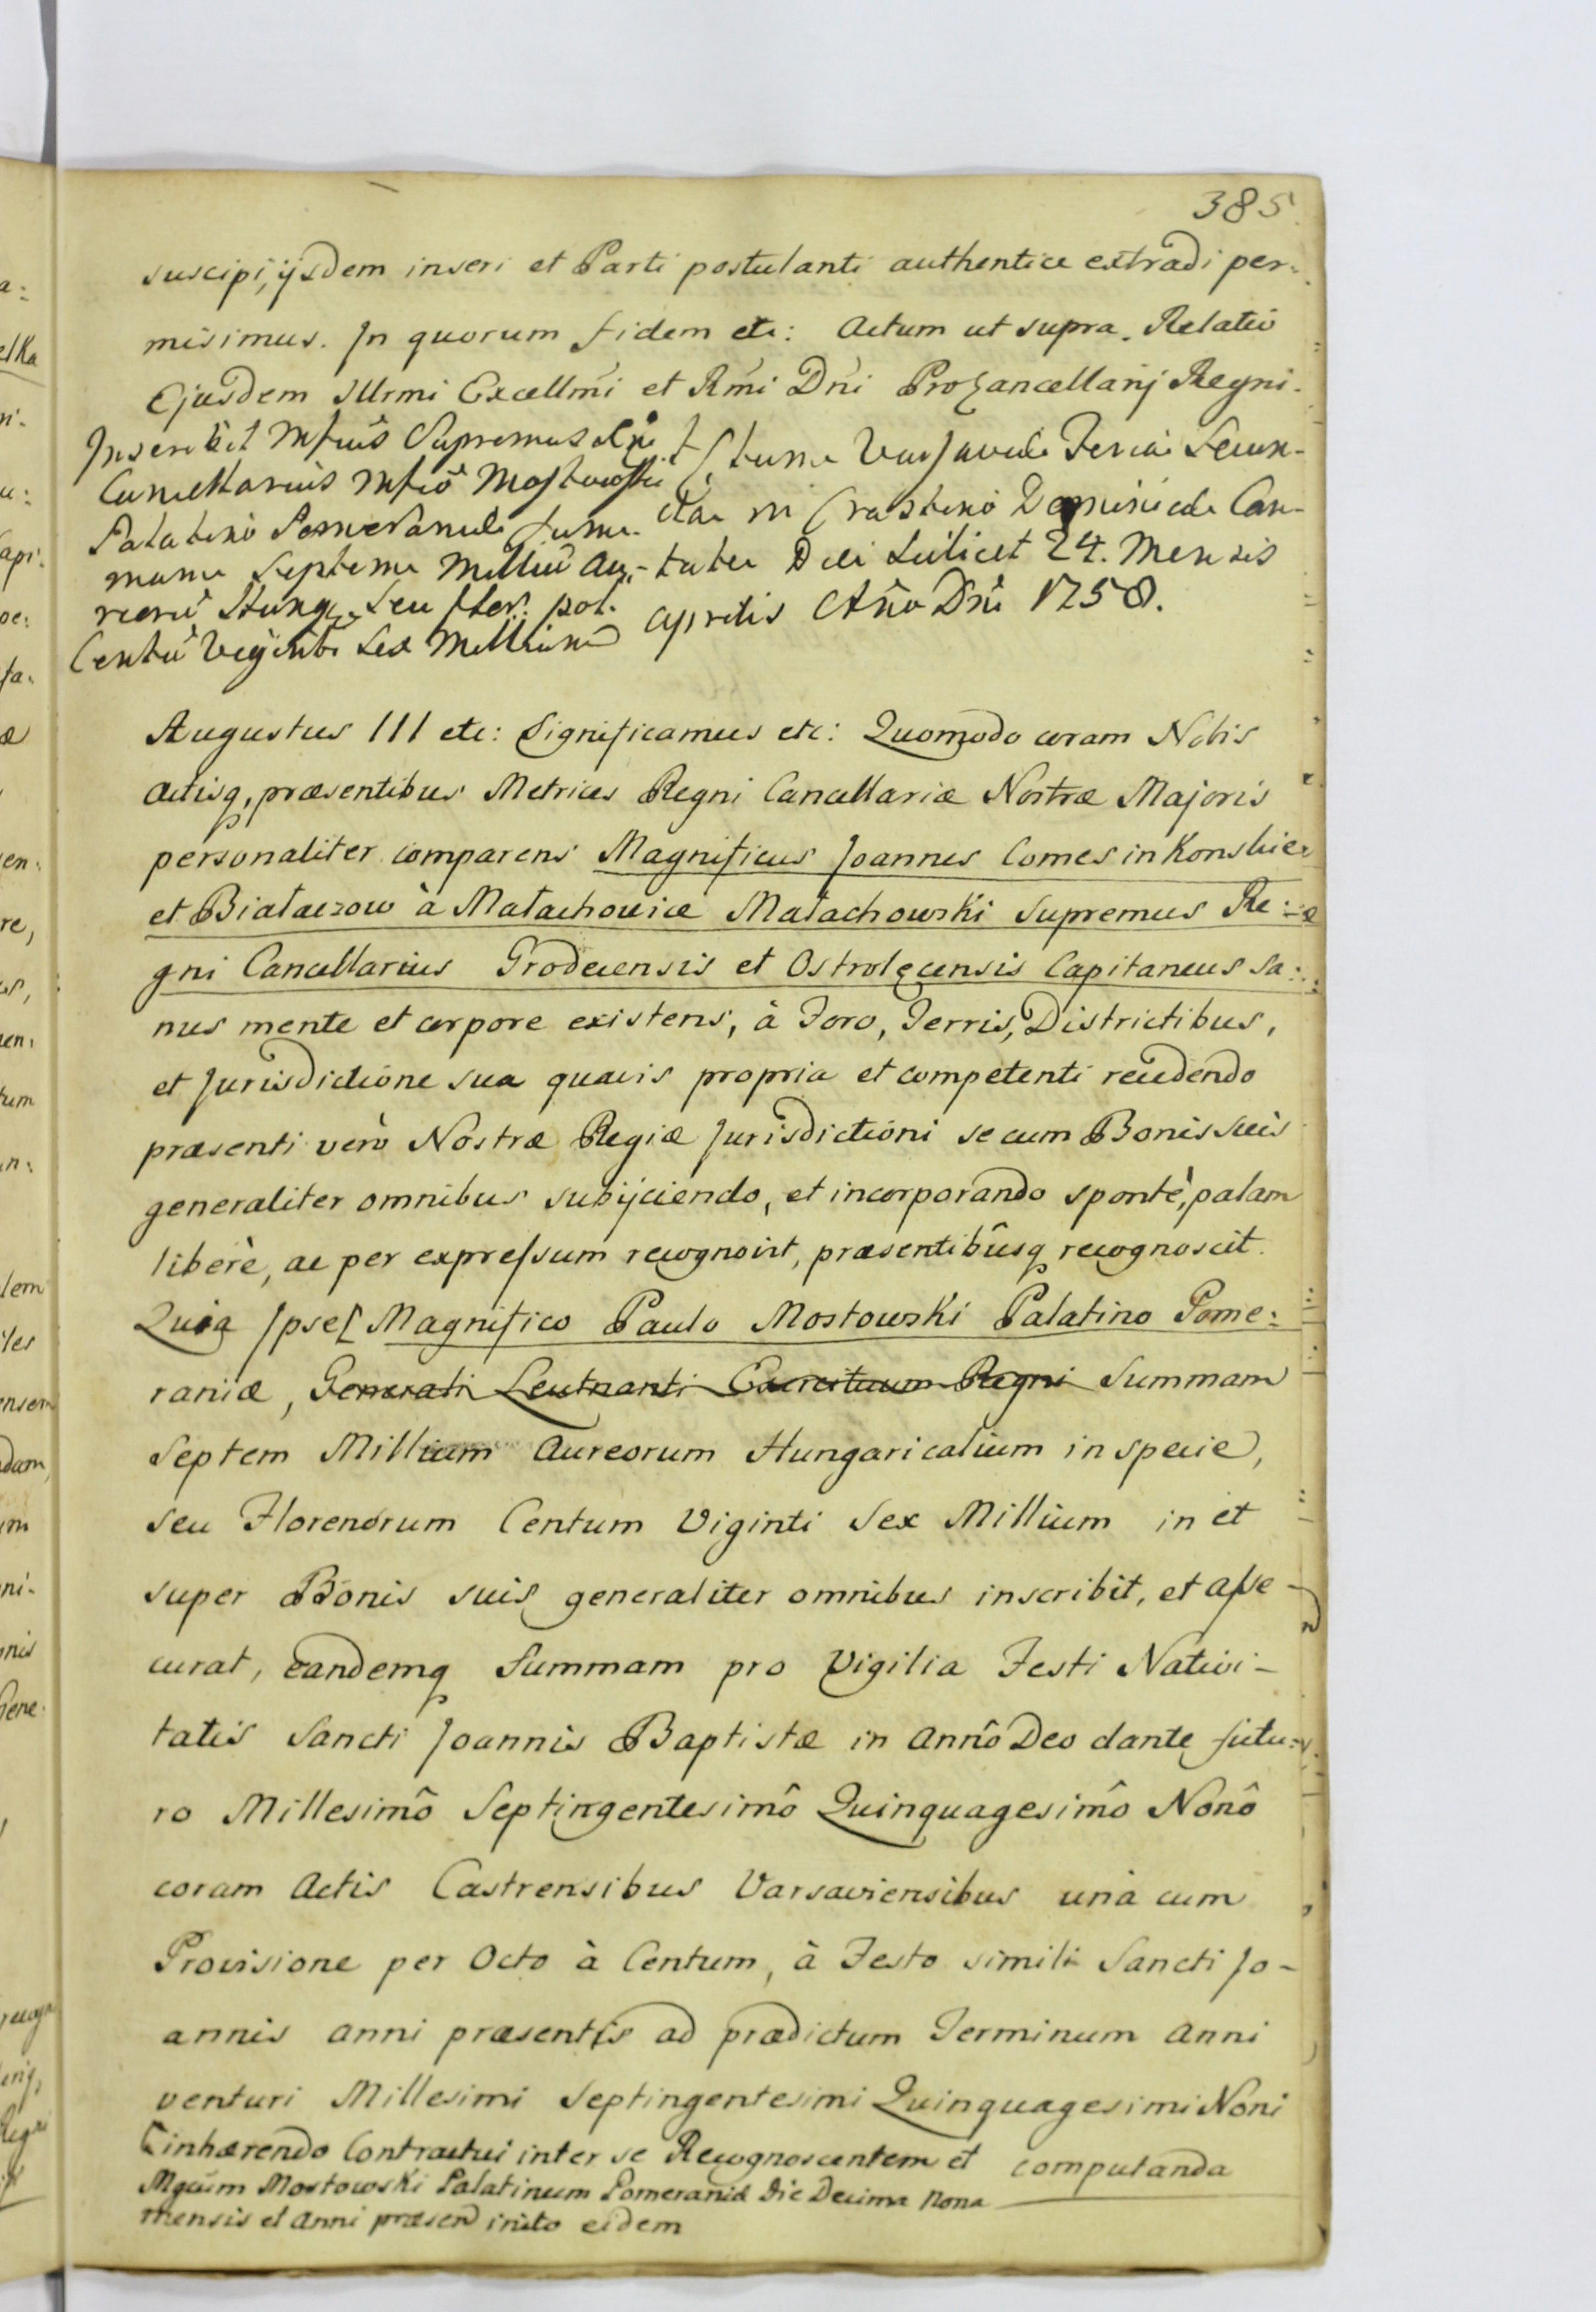 385
suscipi, ijsdem inseri et Parti postulanti authentice extradi per:
misimus. In quorum fidem etc: Actum ut supra. Relatio
Ejusdem Illrmi Excellmi et Rmi Dni ProCancellarij Regni.
Inscribit Mfcus Supremus
Cancellarius Mfco Mostowski
Palatino Pomeraniae summam
Septem Milliu Au-
reoru Hung. seu flor. pol.
Centu Viginti Sex Milliu
Actum Varsaviae Feria Secun-
da in Crastino Dominicae Can-
tate Diei scilicet 24. Mensis
Aprilis Ano Dni 1758.
Augustus III etc: Significamus etc: Quomodo coram Nobis
Actisq, præsentibus Metrices Regni Cancellariæ Nostræ Majoris
personaliter comparens Magnificus Joannes Comes in Konskie
et Białaczow à Małachowice Małachowski Supremus Re:
gni Cancellarius Grodecensis et Ostrołęcensis Capitaneus sa:
nus mente et corpore existens, à Foro, Terris, Districtibus,
et Jurisdictione sua quavis propria et competenti recedendo
præsenti verò Nostræ Regiæ Jurisdictioni se cum Bonis suis
generaliter omnibus subijciendo, et incorporando spontè, palam
liberè, ac per expressum recognovit, præsentibûsq recognoscit.
Quia Ipse [Magnifico Paulo Mostowski Palatino Pome:
raniæ, Generali Leutnanti Exercituum Regni Summam
Septem Millium Aureorum Hungaricalium in specie,
seu Florenorum Centum Viginti Sex Millium in et
super Bonis suis generaliter omnibus inscribit, et asse-
curat, eandemq Summam pro Vigilia Festi Nativi-
tatis Sancti Joannis Baptistæ in Annô Deo dante futu:
ro Millesimô Septingentesimô Quinquagesimô Nonô
coram Actis Castrensibus Varsaviensibus unà cum
Provisione per Octo à Centum, à Festo simili Sancti Jo-
annis anni præsentis ad prædictum Terminum Anni
venturi Millesimi Septingentesimi Quinquagesimi Noni
inhærendo Contractui inter se Recognoscentem et
Mgcum Mostowski Palatinum Pomeraniæ Die Decima Nona
mensis et Anni præsen inito eidem
computanda